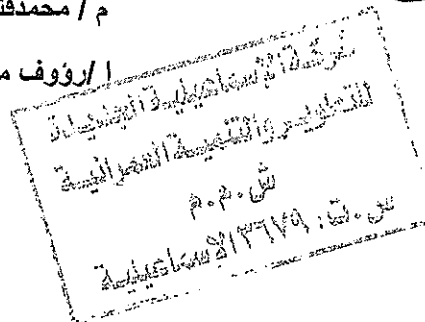 م / محمدفت
ا/رؤوف م
شركة الإسماعيلية الجديدة
للتطوير والتنمية العمرانية
ش.م.م
س.ت: ٣٦٧٩ الإسماعيلية